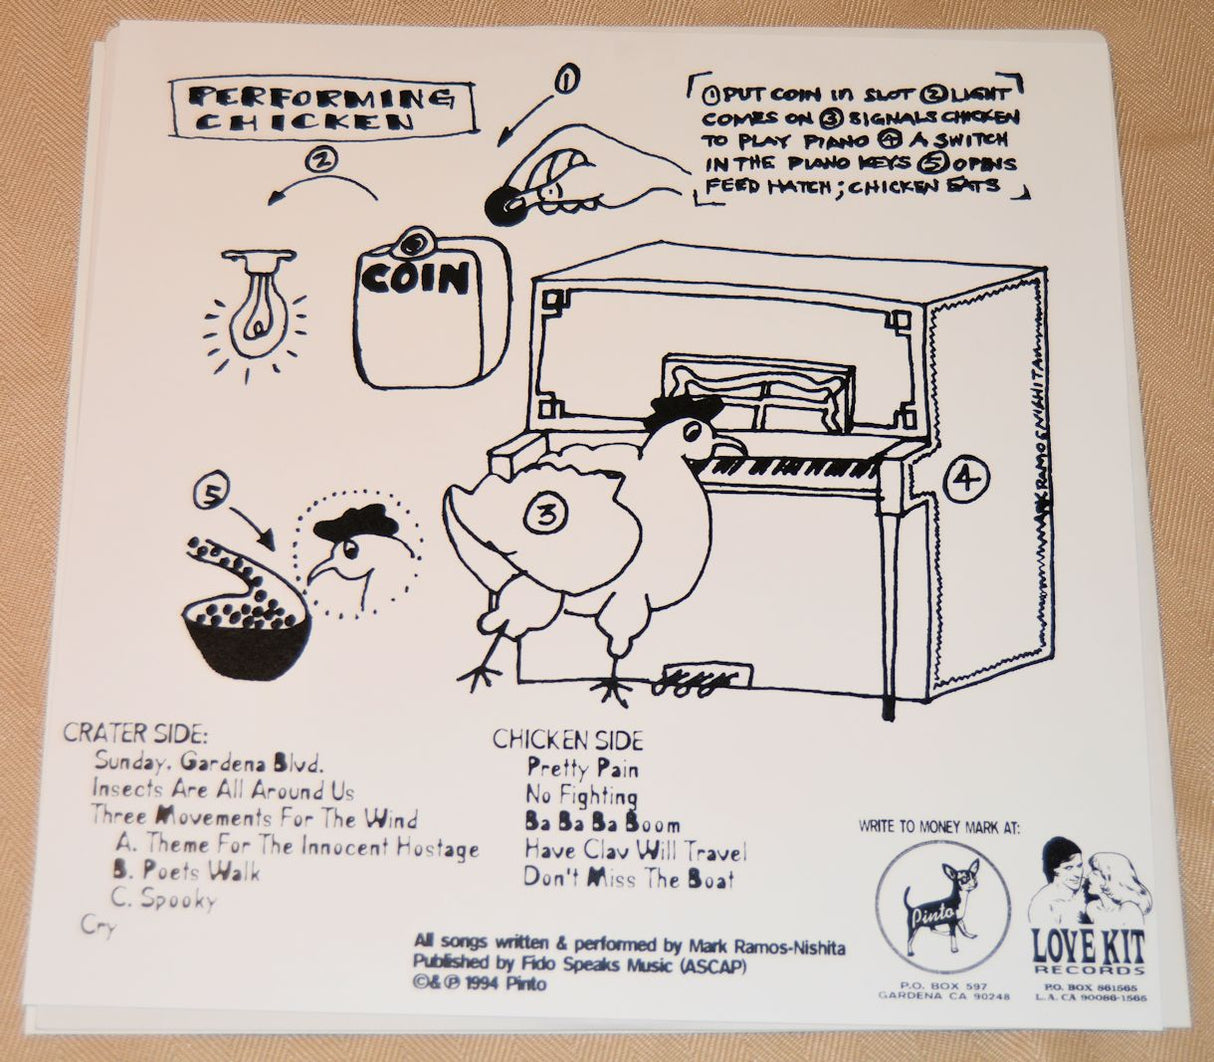 PERFORMING
CHICKEN
①
②
① PUT COIN IN SLOT ② LIGHT
COMES ON ③ SIGNALS CHICKEN
TO PLAY PIANO ④ A SWITCH
IN THE PIANO KEYS ⑤ OPENS
FEED HATCH; CHICKEN EATS
COIN
MARK RAMOS NISHITA
④
③
⑤
CRATER SIDE:
Sunday, Gardena Blvd.
Insects Are All Around Us
Three Movements For The Wind
A. Theme For The Innocent Hostage
B. Poets Walk
C. Spooky
Cry
CHICKEN SIDE
Pretty Pain
No Fighting
Ba Ba Ba Boom
Have Clav Will Travel
Don't Miss The Boat
All songs written & performed by Mark Ramos-Nishita
Published by Fido Speaks Music (ASCAP)
©& ℗ 1994 Pinto
WRITE TO MONEY MARK AT:
Pinto
P.O. BOX 597
GARDENA CA 90248
LOVE KIT
RECORDS
P.O. BOX 861565
L.A. CA 90086-1565